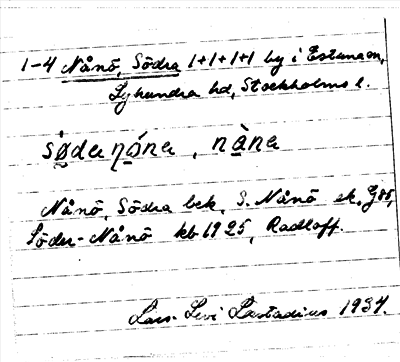 1-4 Nånö, Södra 1+1+1+1 by i Estuna sn,
Lyhundra hd, Stockholms l.
södernåna, nåna
Nånö, Södra bek, S. Nånö ek, G85,
Söder-Nånö kb 1925, Radloff.
Lars Levi Læstadius 1937.